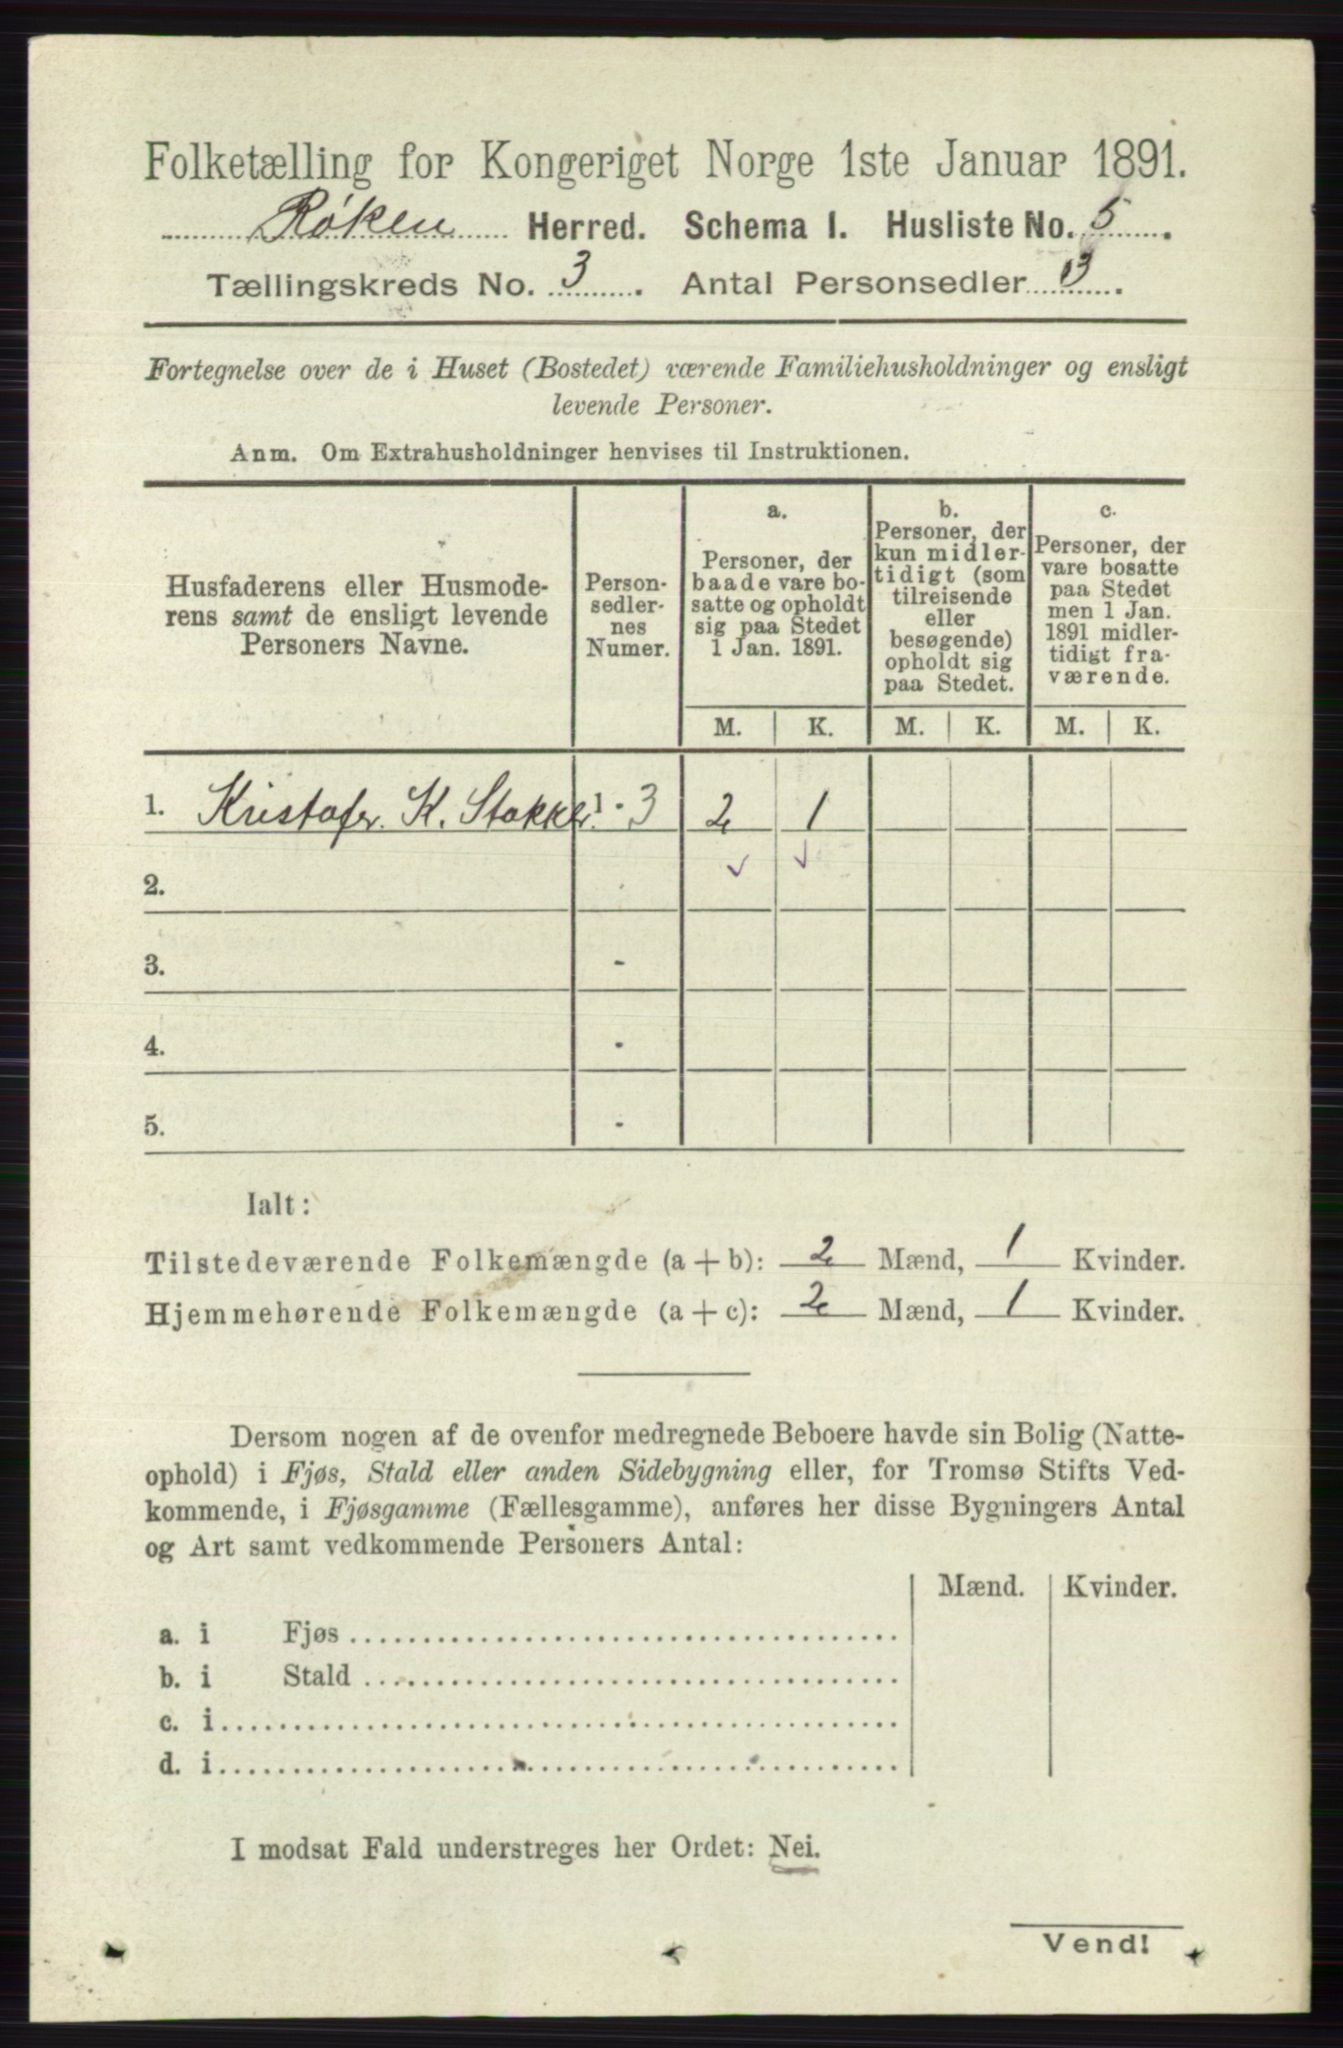 Folketælling for Kongeriget Norge 1ste Januar 1891.
Røken Herred. Schema I. Husliste No. 5.
Tællingskreds No. 3. Antal Personsedler 3.
Fortegnelse over de i Huset (Bostedet) værende Familiehusholdninger og ensligt
levende Personer.
Anm. Om Extrahusholdninger henvises til Instruktionen.
Husfaderens eller Husmode-
rens samt de ensligt levende
Personers Navne.
Person-
sedler-
nes
Numer.
a.
Personer, der
baade vare bo-
satte og opholdt
sig paa Stedet
1 Jan. 1891.
b.
Personer, der
kun midler-
tidigt (som
tilreisende
eller
besøgende)
opholdt sig
paa Stedet.
c.
Personer, der
vare bosatte
paa Stedet
men 1 Jan.
1891 midler-
tidigt fra-
værende.
M. K. M. K. M. K.
1. Kristofer K. Stokker 1 - 3 2 1
2.
3. -
4. -
5. -
Ialt:
Tilstedeværende Folkemængde (a + b): 2 Mænd, 1 Kvinder.
Hjemmehørende Folkemængde (a + c): 2 Mænd, 1 Kvinder.
Dersom nogen af de ovenfor medregnede Beboere havde sin Bolig (Natte-
ophold) i Fjøs, Stald eller anden Sidebygning eller, for Tromsø Stifts Ved-
kommende, i Fjøsgamme (Fællesgamme), anføres her disse Bygningers Antal
og Art samt vedkommende Personers Antal:
Mænd. Kvinder.
a. i Fjøs
b. i Stald
c. i
d. i
I modsat Fald understreges her Ordet: Nei.
Vend!